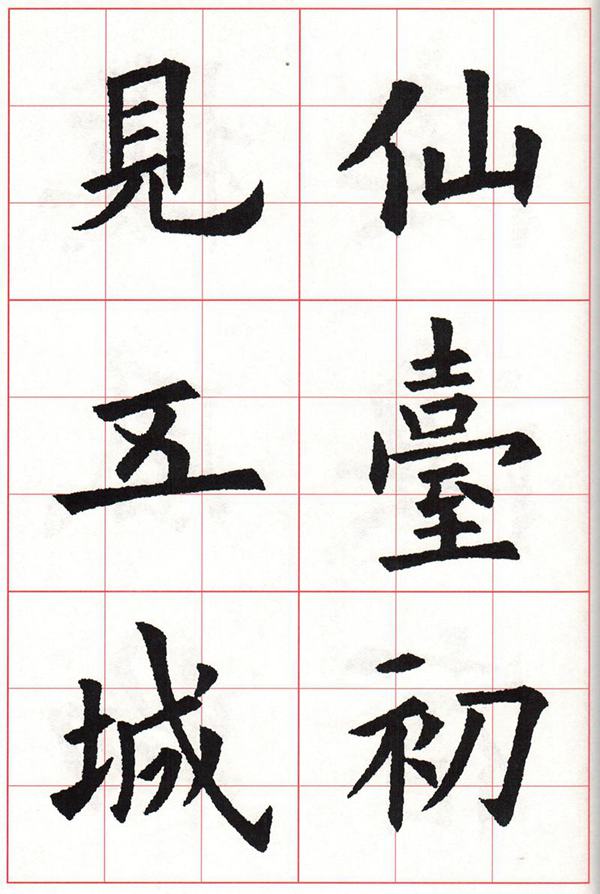 仙臺初
見五城